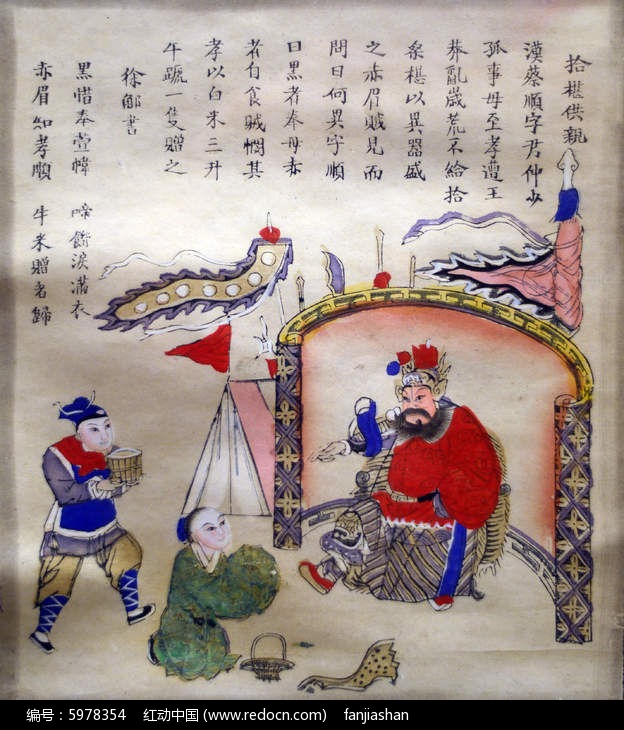 拾椹供親
漢蔡順字君仲少
孤事母至孝遭王
莽亂歲荒不給拾
桑椹以異器盛
之赤眉賊見而
問曰何異乎順
曰黑者奉母赤
者自食賊憫其
孝以白米三斗
牛蹏一隻贈之
徐邮書
黑椹奉萱幃 啼饑淚滿衣
赤眉知孝順 牛米贈君歸
编号：5978354 红动中国 (www.redocn.com) fanjiashan